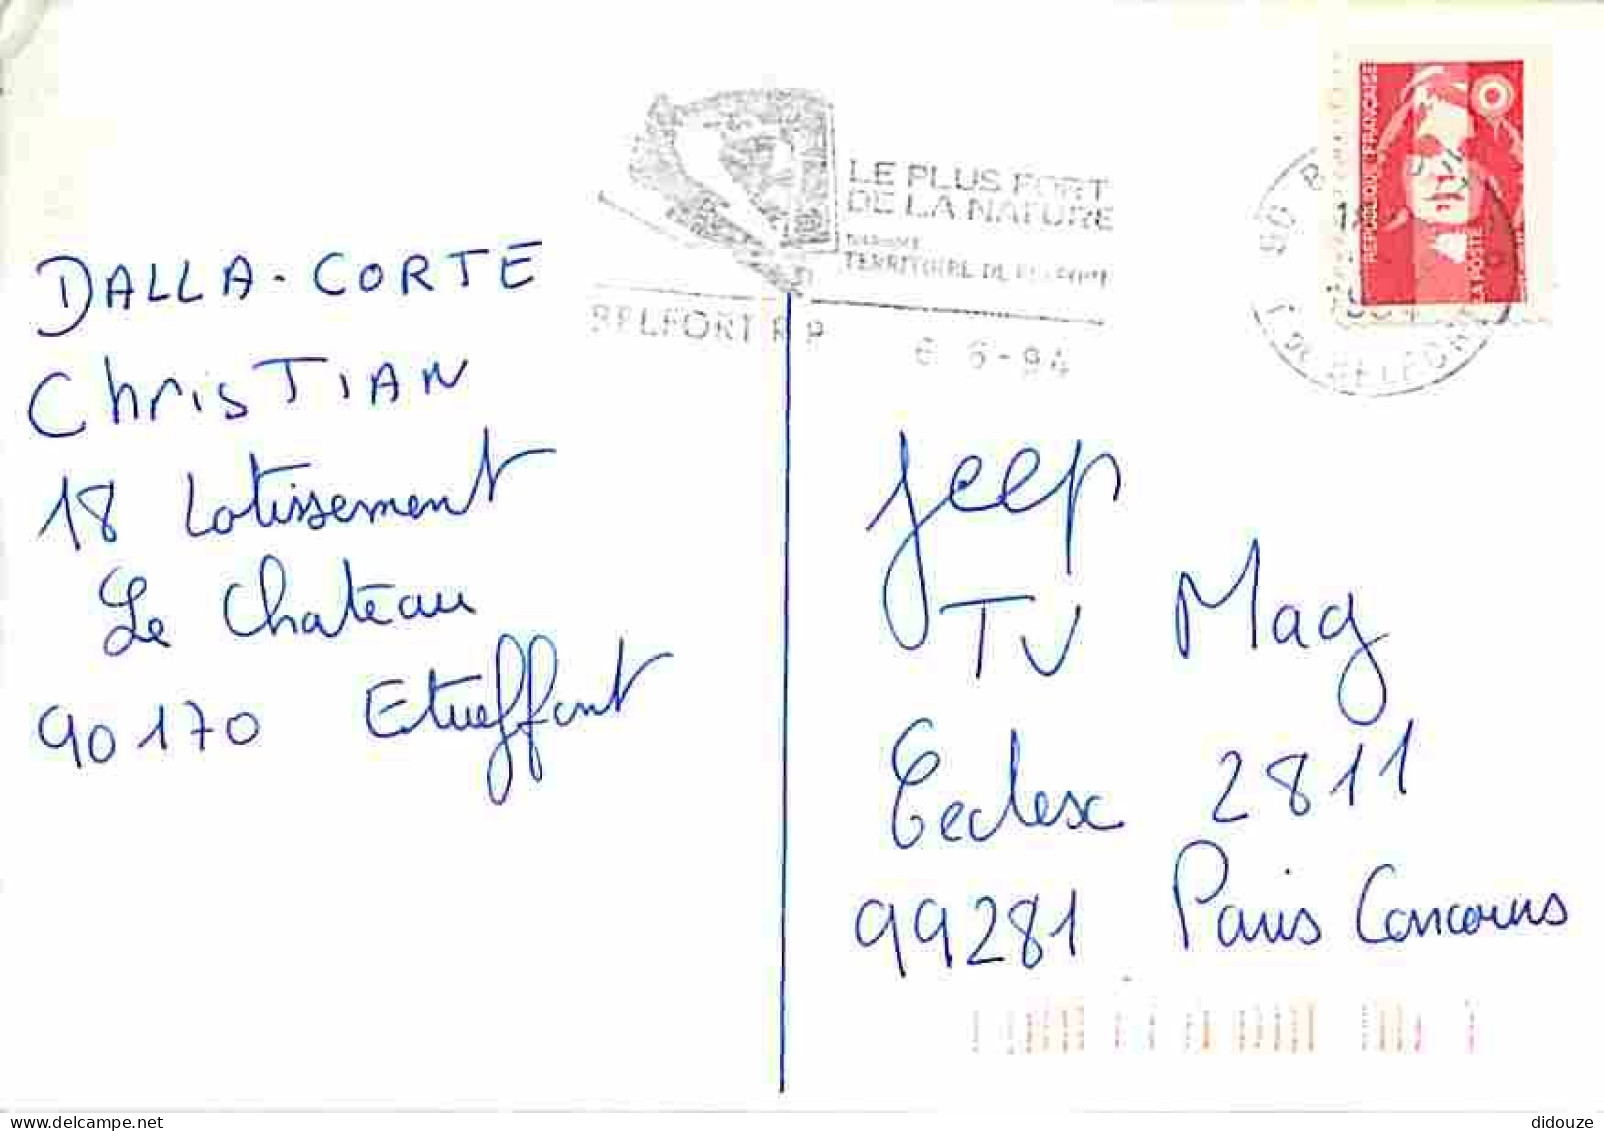 LE PLUS FORT
DE LA NATURE
TERRITOIRE DE BELFORT
BELFORT R P
6 6-94
REPUBLIQUE FRANÇAISE
LA POSTE
BELFORT
DALLA-CORTE
ChrisTIAN
18 Lotissement
Le Chateau
90170 Etueffont
Jeep
TV Mag
Cedex 2811
99281 Paris Concours
didouze